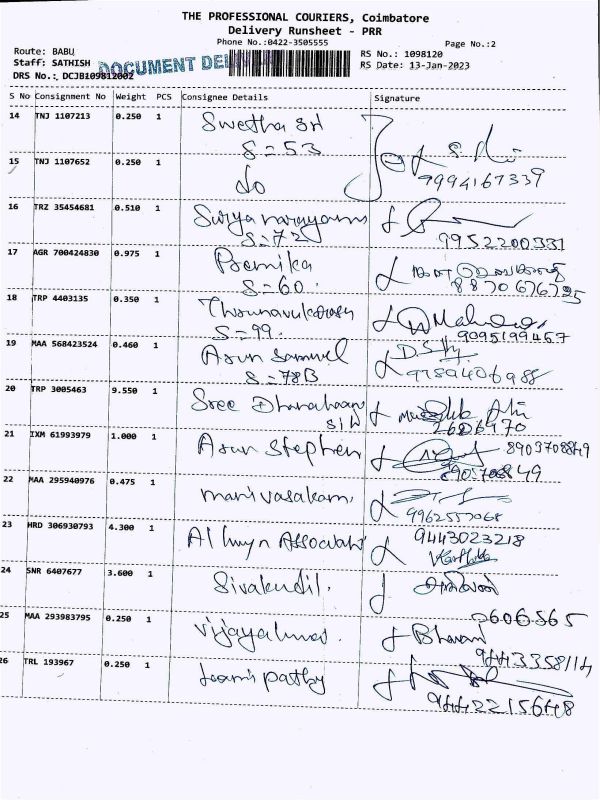 THE PROFESSIONAL COURIERS, Coimbatore
Delivery Runsheet - PRR
Phone No.:0422-3505555
Page No.:2
Route: BABU
RS No.: 1098120
Staff: SATHISH
DOCUMENT DEL
RS Date: 13-Jan-2023
DRS No.: DCJB109812002
S No Consignment No Weight PCS Consignee Details Signature
14 TNJ 1107213 0.250 1 Swetha Sri
S=53
15 TNJ 1107652 0.250 1 do 9994167339
16 TRZ 35454681 0.510 1 Suryanarayanan
S=72 9952200331
17 AGR 700424830 0.975 1 Premika
S=60 8870676795
18 TRP 4403135 0.350 1
S=99. 9095199467
19 MAA 568423524 0.460 1 Arun Samuel
S=78B
20 TRP 3005463 9.550 1 Sree
S/W 2606470
21 IXM 61993979 1.000 1 Arun Stephen 8903708849
22 MAA 295940976 0.475 1 manivasakam
9962557068
23 HRD 306930793 4.300 1 Alwyn Associate 9443023218
24 SNR 6407677 3.600 1 Sivakudil.
2606565
25 MAA 293983795 0.250 1 Bhavani
9443358114
26 TRL 193967 0.250 1
9442215648